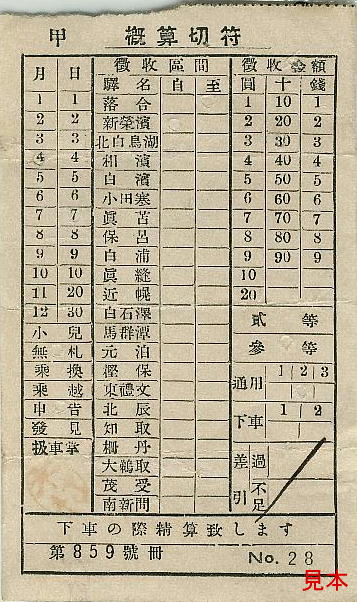 甲 概算切符
月 日 徴收區間 徴收金額
驛名 自 至 圓 十 錢
1 1 落合 1 10 1
2 2 新榮濱 2 20 2
3 3 北白鳥湖 3 30 3
4 4 相濱 4 40 4
5 5 白濱 5 50 5
6 6 小田寒 6 60 6
7 7 眞苫 7 70 7
8 8 保呂 8 80 8
9 9 白浦 9 90 9
10 10 眞縫 10
11 20 近幌 20
12 30 白石澤
小兒 馬群潭 貳等
無札 元泊 參等
乘換 樫保 通用 1 2 3
乘越 東禮文
申告 北辰 下車 1 2
發見 知取
扱車掌 柵丹 差引 過
大鵜取
茂受 不足
南新問
下車の際精算致します
第859號冊 No.28
見本